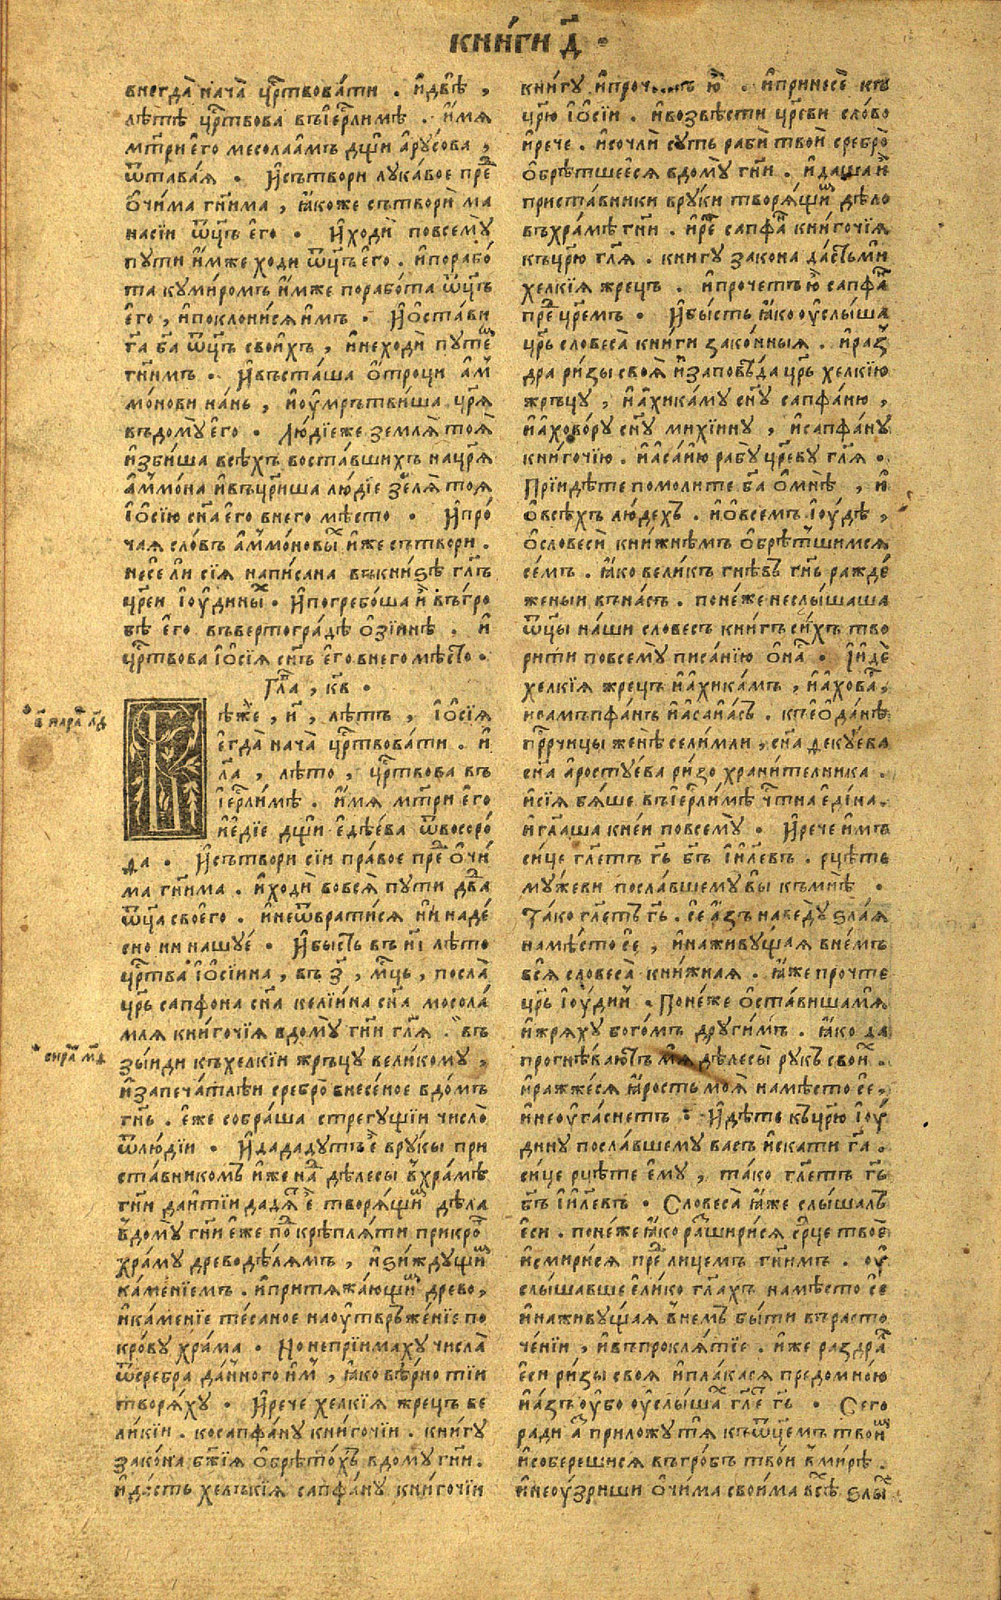 КНИ́ГИ Д҃ ·
внегда̀ нача̀ црⷭ҇твова́ти . и҆две̑ ,
лѣ́тѣ црⷭ҇твова въі҆ерⷭ҇лимѣ . и҆́мя
мт҃ри е҆го̀ месолаа́мъ дщи а҆ру́сова ,
ѿтава́я · И҆сътвори лука́вое преⷣ
ѻ҆чи́ма гн҃има , ꙗ҆́коже сътвори̑ ма
насі́и ѿц҃ъ е҆го̀ · И҆ходи̑ повсемꙋ̀
пути и҆́мже ходи ѿц҃ъ е҆го̀ . и҆порабо́
та куми́ромъ и҆́мже порабо́та ѿц҃ъ
е҆го̀ , и҆поклони́ся и҆́мъ · И҆ѻ҆ста́ви
гⷭ҇а ба҃ ѿц҃ъ свои́хъ , и҆неходи̑ путеⷨ
гн҃имъ · И҆въста́ша ѻ҆́троци а҆м
мо́нови на́нь , и҆оу҆мръ́тви́ша цр҃я
въдомꙋ̀ е҆го̀ · Лю́дїеже земля̀ тоя̀
и҆зби́ша всѣ́хъ воста́вшихъ нацр҃я
а҆ммо́на и҆въцр҃и́ша лю́дїе земля̀ тоя
і҆ѻ҆сі́ю сн҃а е҆го̀ внего мѣ́сто · И҆про́
чая сло́въ а҆ммо́новыⷯ и҆́же сътвори .
несе́ ли сїя̀ напи́сана въкни́ѕѣ гл҃ъ
цр҃еи і҆оу́диныⷯ · И҆погребо́ша и҆̀ въгро́
бѣ е҆го̀ въвертогра́дѣ ѻ҆зі́инѣ . и҆
црⷭ҇твова і҆ѻ҆сі́я сн҃ъ е҆го̀ внего мѣ́сто ·
Гла҃ , к҃в ·
ѣ́же , и҃ , лѣ́тъ , і҆ѻ҆сі́я
е҆гда̀ нача̀ црⷭ҇твова́ти . и҆
л҃а , лѣ́то , црⷭ҇твова въ
і҆ерⷭ҇ли́мѣ . и҆́мя мт҃ри е҆го̀
и҆е҆ді́е дщи е҆дѣ́е́ва ѿвосоро́
да · И҆сътвори сіи пра́вое преⷣ ѻ҆чи́
ма гн҃има . и҆ходи̑ вовся̀ пути дв҃да
ѿц҃а своего̀ . и҆неѿврати́ся ни наде́
сно ни нашуе́ · И҆бы́сть въ н҃і лѣ́то
црⷭ҇тва і҆ѻ҆сі́ина , въ з҃ , мцⷭ҇ь , посла̀
цр҃ь сапфона сн҃а келі́ина сн҃а мосола́
мля кни́гочїя вдомꙋ̀ гн҃и гл҃я . въ
зы́иди къхелкі́и жръцу вели́кому ,
и҆запеча́тлѣи сребро̀ внесе́ное вдо́мъ
гн҃ь . е҆́же собра́ша стрегу́щїи число̀
ѿлю́дїи · И҆дададутъ е҆̀ вруцѣ при
ста́вникомъ и҆́же наⷣ дѣ́лесы в҆хра́мѣ
гн҃и да и҆ті́и дадя́тъ е҆̀ творя́щиⷨ дѣ́ла
в҆домꙋ̀ гн҃и е҆́же поⷣкрѣпля́ти прикроⷡ
хра́му древодѣ́лямъ , и҆ѕи́ждущиⷨ
ка́менїемъ . и҆притяжа́ющиⷨ древо ,
и҆ка́менїе те́саное наоу҆твръже́нїе по
кро́ву хра́ма · Но непрїима́ху числа̀
ѿсребра да́нного и҆м , ꙗ҆́ко вѣ́рно ті́и
творя́ху · И҆рече хелкі́я жре́цъ ве
ли́кіи . косапфа́ну кни́гочїи . кни́гу
зако́на бж҃їя ѻ҆брѣто́хъ вдомꙋ гн҃и .
и҆да́сть хелъкі́я сапфа́ну кни́гочїи
кни́гу . и҆принесѐ къ
цр҃ю і҆ѻ҆сі́и . и҆возвѣсти цр҃еви сло́во
и҆рече . и҆сочли̑ су́ть раби̑ твои̑ сребро̀
ѻ҆брѣ́тшееся вдомꙋ̀ гн҃и . и҆даша и҆̀
приста́вники вру́ки творя́щиⷨ дѣ́ло
въхра́мѣ гн҃и . и҆реⷱ҇ сапфаⷩ кни́гочїя
къцр҃ю гл҃я . книгу зако́на да́стъми
хелкі́я жре́цъ . и҆прочетъ ю҆̀ сапфаⷩ
преⷣ цр҃емъ · И҆бы́сть ꙗ҆́ко оу҆слы́ша
цр҃ь словеса̀ кни́ги зако́нныя . и҆раз
дра ри́зы своя̀ и҆заповѣ́да цр҃ь хелкі́ю
жръцу̀ , и҆а҆хика́му сн҃у сапфа́ню ,
и҆а҆хово́ру сн҃у михі́ину , и҆сапфа́ну
кни́гочїю . и҆а҆са́ию рабу̀ цр҃еву гл҃я ·
Прїидѣ́те помоли́те ба҃ ѻ҆мнѣ̀ , и҆
ѻ҆всѣ́хъ лю́дехъ . и҆ѻ҆все́мъ і҆оу́дѣ ,
ѻ҆словеси̑ кни́жнѣмъ ѻ҆брѣ́тшимся
се́мъ . ꙗ҆́ко вели́къ гнѣ́въ гн҃ь ражде́
женыи въна́съ . поне́же неслы́шаша
ѿц҃ы на́ши слове́съ кни́гъ си́хъ тво
ри́ти повсемꙋ̀ писа́нїю ѻ҆на · І҆и́де
хелкі́я жре́цъ и҆а҆хика́мъ , и҆а҆хова ,
исамъпфа́нъ и҆а҆са́иасъ . къѻ҆ода́нѣ
прⷪ҇рчицы женѣ селимли , сн҃а декуева
сн҃а а҆росту́ева ри́зо храни́телника .
и҆сі́я бя́ше въі҆ерⷭ҇ли́мѣ чт҃на е҆ди́на .
и҆гл҃аша кнеи повсемꙋ̀ · И҆рече и҆́мъ
си́це гл҃етъ гь҃ бг҃ъ і҆и҃левъ . рцѣ́те
му́жеви посла́вшему вы̀ къмнѣ̀ ·
Та́ко гл҃етъ гь҃ . се а҆́зъ наведꙋ̀ ѕла́я
намѣ́сто се , и҆наживу́щая вне́мъ
вся̀ словеса̀ кни́жная . ꙗ҆́же прочте
цр҃ь і҆оу́диⷩ . Поне́же ѻ҆ста́вишамя̀
и҆жря́ху бого́мъ други́мъ . ꙗ҆́ко да
прогнѣ́ваютъ мя̀ дѣ́лесы̀ ру́къ своиⷯ .
и҆ражже́ся ꙗ҆́рость моя̀ намѣ́сто се ,
и҆неоу҆га́снетъ : И҆дѣ́те къцр҃ю і҆оу́
дину посла́вшему ва́съ и҆ска́ти гⷭ҇а .
си́це рцѣ́те е҆мꙋ̀ , та́ко гл҃етъ гь҃
бг҃ъ і҆и҃левъ · Словеса̀ ꙗ҆́же слы́шалъ
е҆си . поне́же ꙗ҆́ко ра́сширися срⷣце твоѐ
и҆смири́ся преⷣ лице́мъ гн҃имъ . оу҆
слы́шавше е҆ли́ко гл҃ахъ намѣ́сто се
и҆наживу́щая в҆не́мъ бы́ти въра́сто
че́нїи , и҆въпрокля́тїе . и҆́же раздра
е҆си ри́зы своя и҆пла́кася предомно́ю
и҆а҆́зъ оу҆́бо оу҆слы́шаⷯ гл҃е гь҃ · Сего
ради аⷥ приложу тя̀ къѿцемъ твоиⷨ
и҆собереши́ся въгро́бъ тво́и в҆ми́рѣ .
и҆неоу́зриши ѻ҆чима свои́ма всѣⷯ ѕлыⷯ